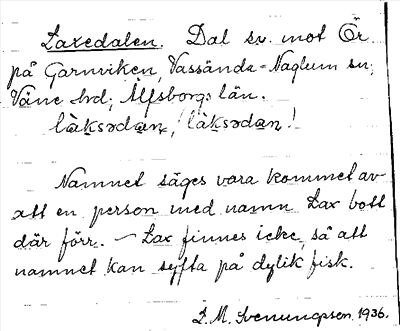 Laxedalen. Dal sv. mot Ör
på Garnviken, Vassända-Naglum sn;
Väne hd; Älfsborgs län.
làksədan, ! làksədan !
Namnet säges vara kommet av
att en person med namn Lax bott
där förr. — Lax finnes icke, så att
namnet kan syfta på dylik fisk.
L. M. Svenungsson 1936.